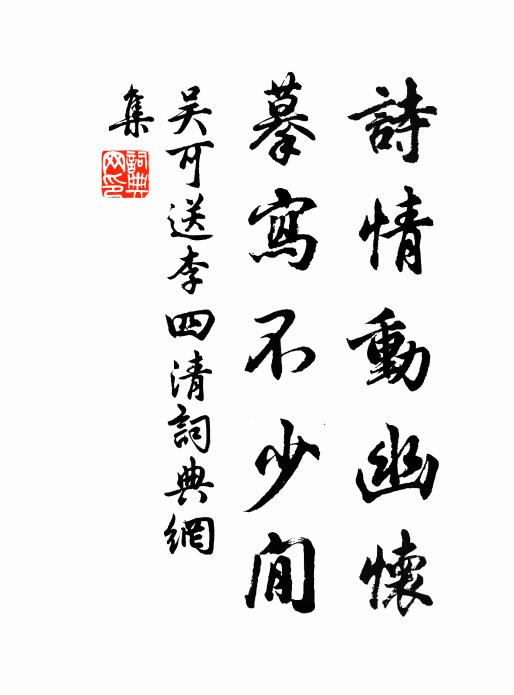 詩情動幽懷
摹寫不少閒
吴可送李四清詞典網
集
詞典網印